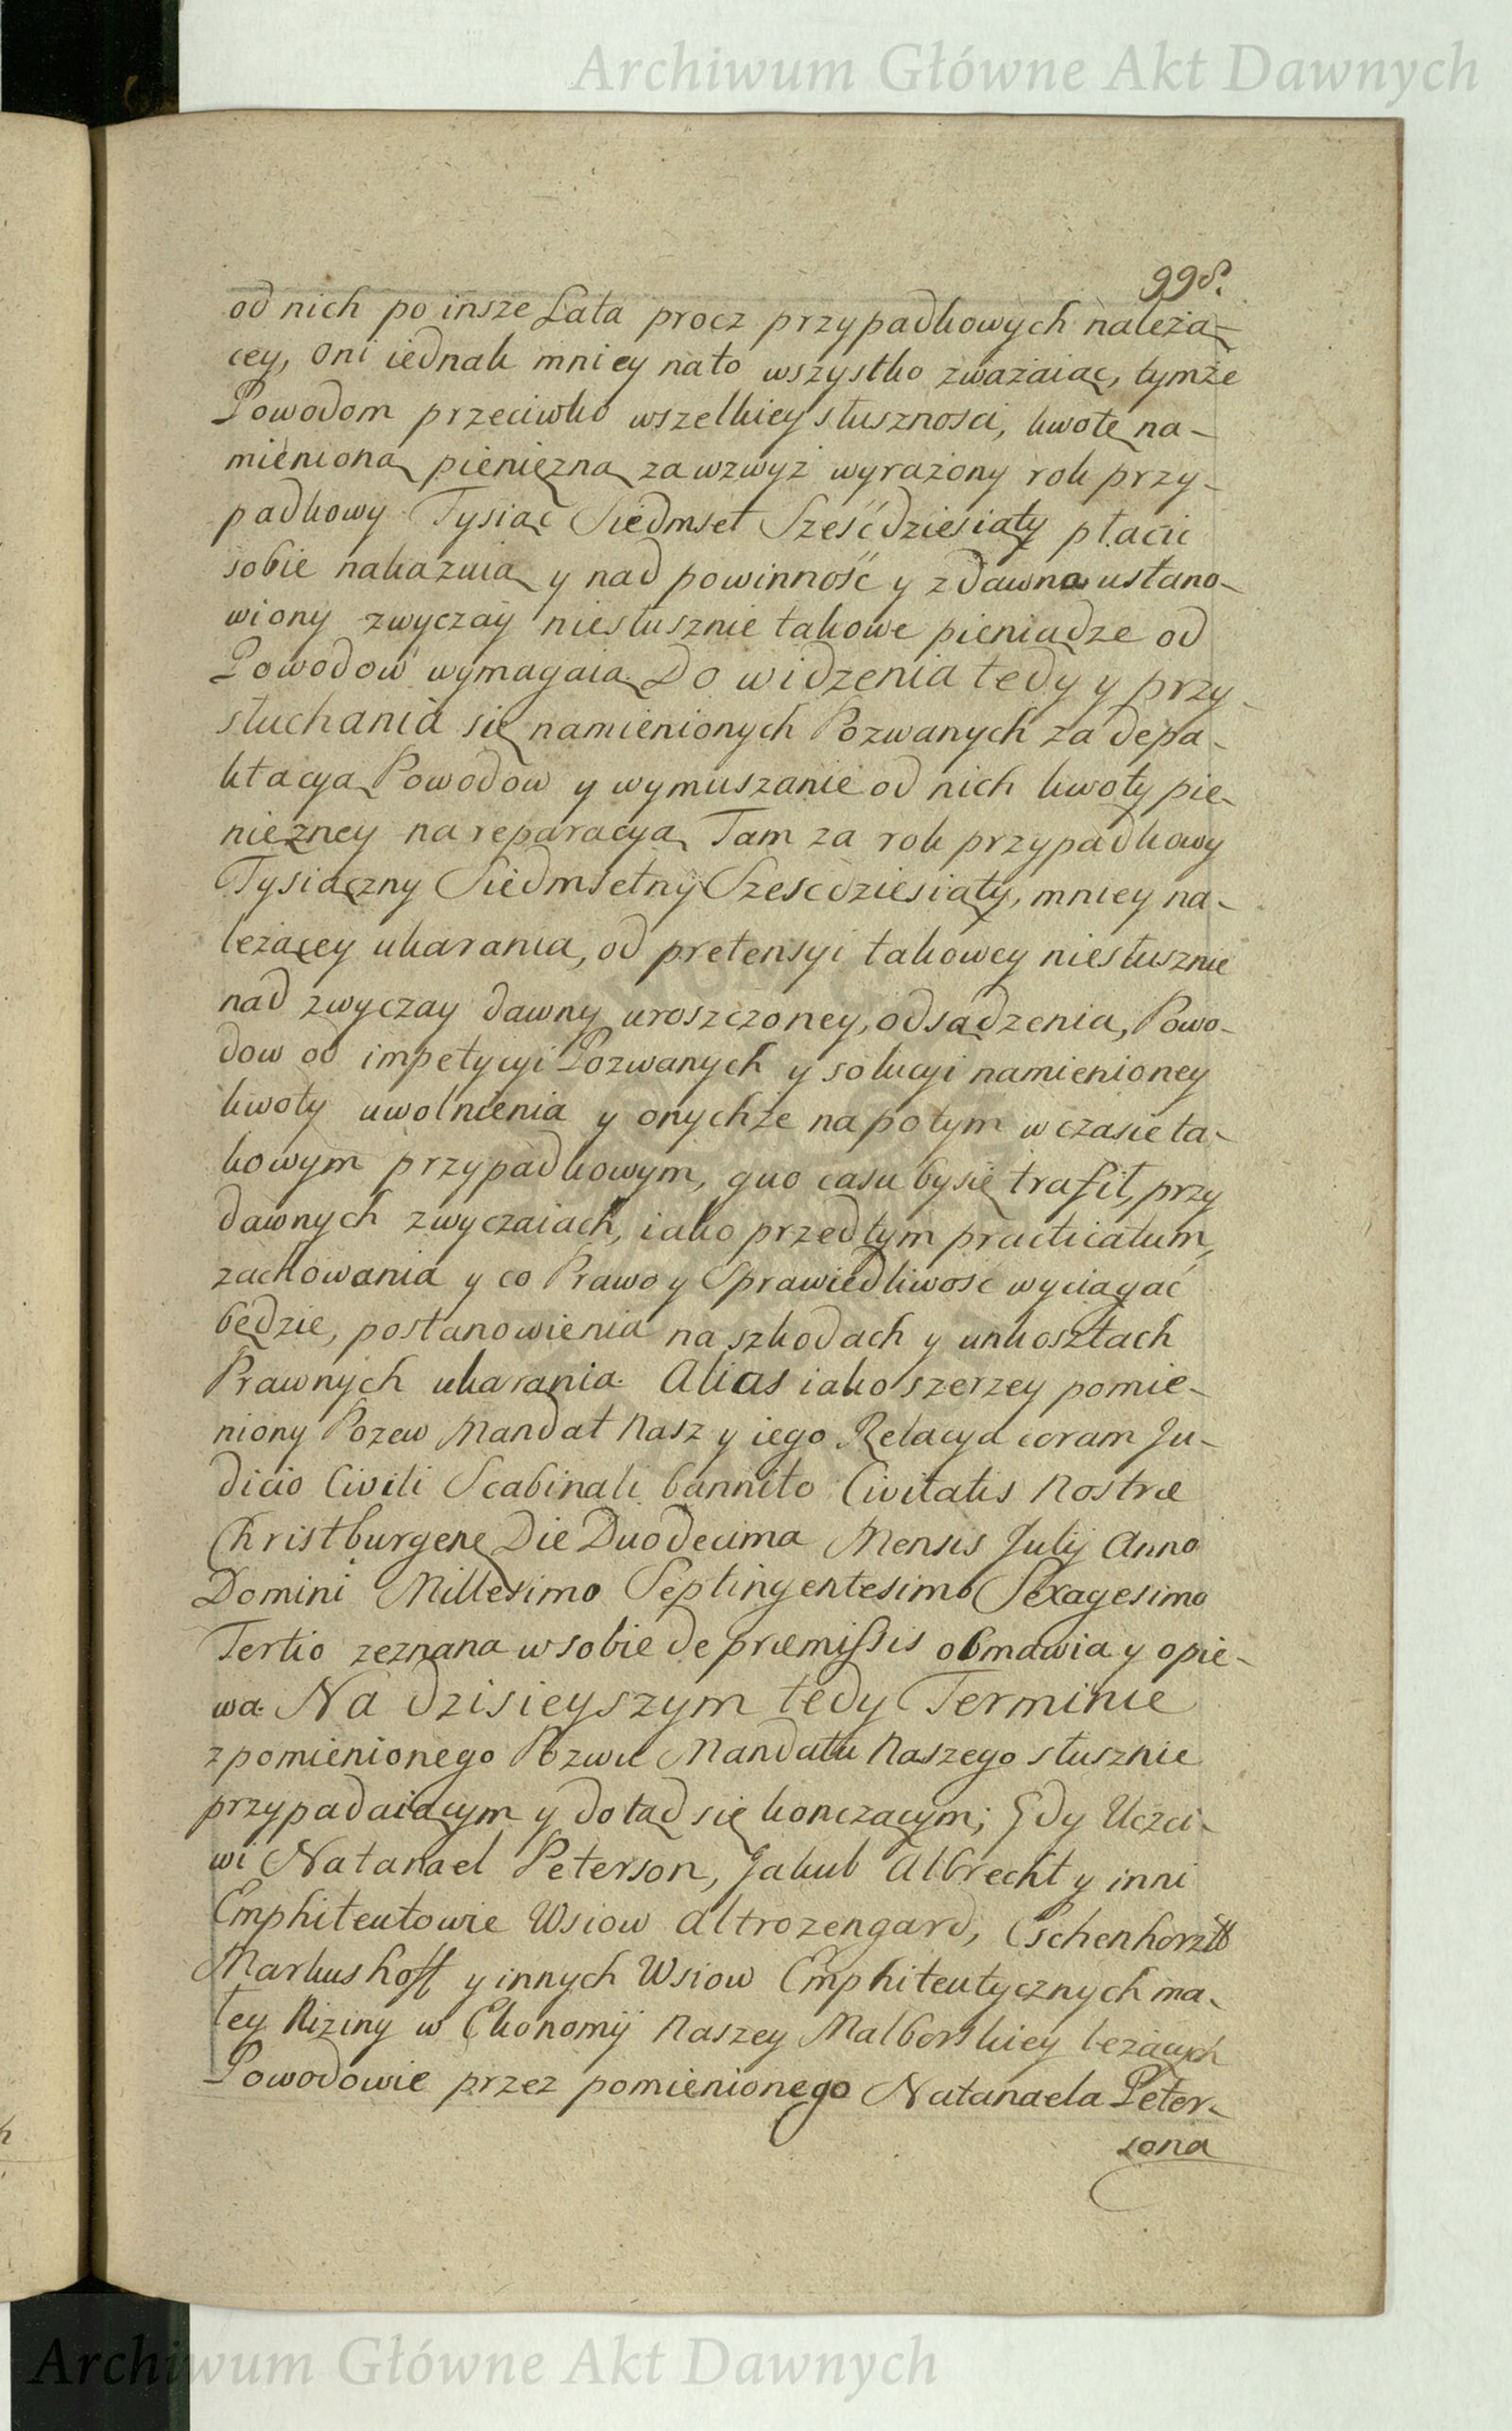 Archiwum Główne Akt Dawnych
998.
od nich po insze Lata procz przypadkowych należą-
cey, oni iednak mniey na to wszystko zważaiąc, tymże
Powodom przeciwko wszelkiey słusznosci, kwotę na-
mienioną pieniężną za wzwyż wyrażony rok przy-
padkowy Tysiąc Siedmset Sześćdziesiąty płacić
sobie nakazuią y nad powinność y z dawna ustano-
wiony zwyczay niesłusznie takowe pieniądze od
Powodow wymagaią. Do widzenia tedy y przy-
słuchania się namienionych Pozwanych za depa-
ktacyą Powodow y wymuszanie od nich kwoty pie-
niężney na reparacyą Tam za rok przypadkowy
Tysiączny Siedmsetny Szescdziesiąty, mniey na-
leżącey ukarania, od pretensyi takowey niesłusznie
nad zwyczay dawny uroszczoney, odsądzenia, Powo-
dow od impetycyi Pozwanych y solucyi namienioney
kwoty uwolnienia y onychże napotym w czasie ta-
kowym przypadkowym, quo casu by się trafił, przy
dawnych zwyczaiach, iako przedtym practicatum,
zachowania y co Prawo y Sprawiedliwość wyciągać
będzie, postanowienia na szkodach y unkosztach
Prawnych ukarania. Alias iako szerzey pomie-
niony Pozew Mandat Nasz y iego Relacya coram Ju-
dicio Civili Scabinali bannito Civitatis Nostræ
Christburgen Die Duodecima Mensis Julij Anno
Domini Millesimo Septingentesimo Sexagesimo
Tertio zeznana w sobie de præmissis obmawia y opie-
wa. Na dzisieyszym tedy Terminie
z pomienionego Pozwu Mandatu Naszego słusznie
przypadaiącym y dotąd się konczącym; Gdy Uczci-
wi Natanael Peterson, Jakub Albrecht y inni
Emphiteutowie Wsiow Altrozengard, Eschenhorzt
Markushoff y innych Wsiow Emphiteutycznych ma-
łey Niziny w Ekonomij Naszey Malborskiey leżących
Powodowie przez pomienionego Natanaela Peter-
sona
Archiwum Główne Akt Dawnych